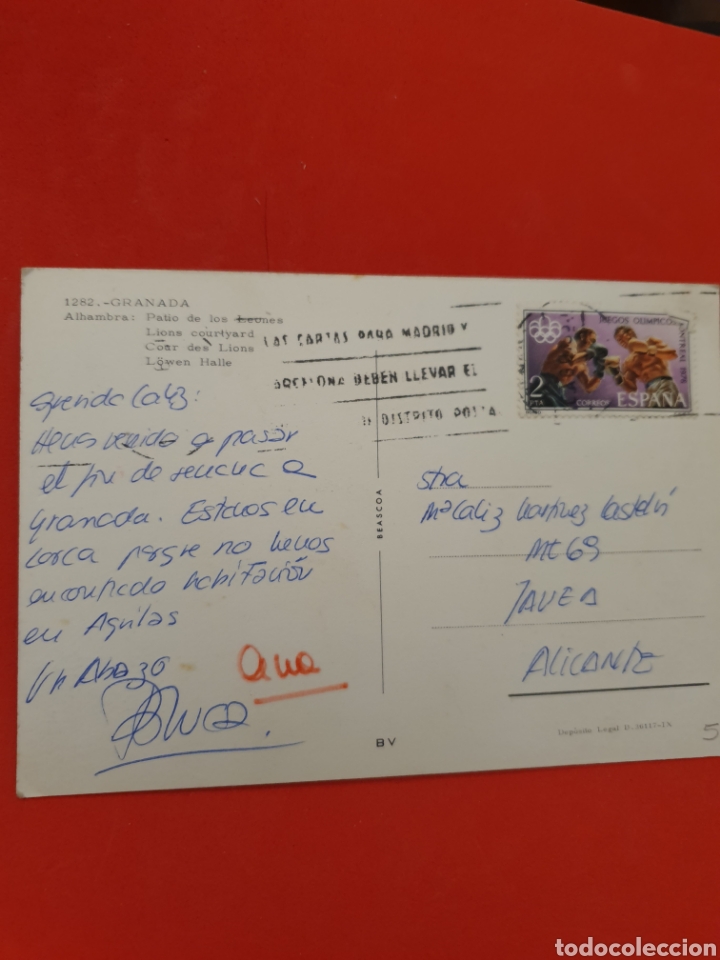 1282.-GRANADA
Alhambra: Patio de los Leones
Lions courtyard
Cour des Lions
Löwen Halle
LAS CARTAS PARA MADRID Y
BARCELONA DEBEN LLEVAR EL
DISTRITO POSTAL
JUEGOS OLIMPICOS
MONTREAL 1976
2
PTA
CORREOS
ESPAÑA
Querida Caliz:
Hemos venido a pasar
el fin de semana a
Granada. Estamos en
Lorca porque no hemos
encontrado habitación
en Aguilas
Un Abrazo
ana
BEASCOA
Stra
Mª Caliz Martinez
Mt 69
JAVEA
ALICANTE
BV
Depósito Legal
5
todocoleccion